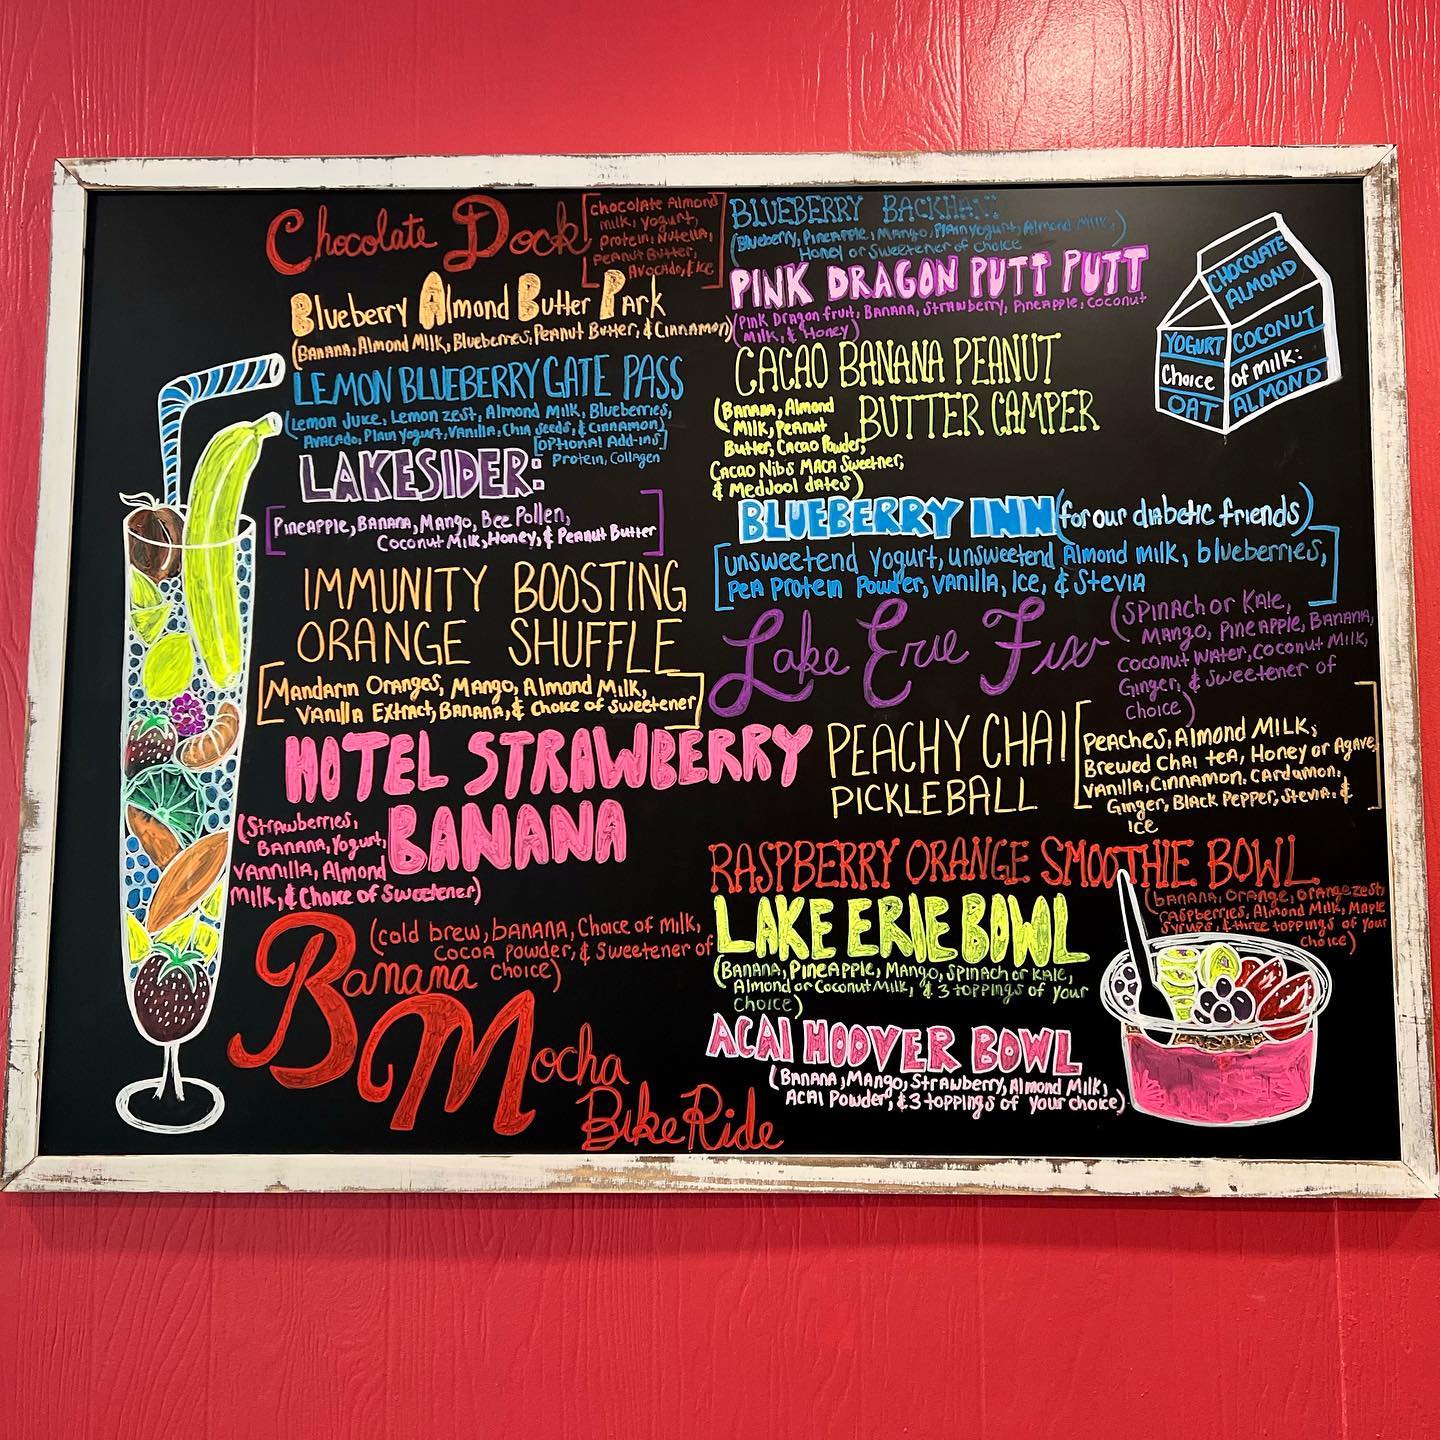 Chocolate Dock
[chocolate Almond
milk, yogurt,
protein, Nutella,
Peanut Butter,
Avocado, & ice]
Blueberry Almond Butter Park
(Banana, Almond Milk, Blueberries, Peanut Butter, & Cinnamon)
LEMON BLUEBERRY GATE PASS
(Lemon Juice, Lemon zest, Almond Milk, Blueberries,
Avacado, Plain yogurt, Vanilla, Chia seeds, & Cinnamon)
[optional Add-ins]
Protein, Collagen
LAKESIDER:
[Pineapple, Banana, Mango, Bee Pollen,
Coconut Milk, Honey, & Peanut Butter]
IMMUNITY BOOSTING
ORANGE SHUFFLE
[Mandarin Oranges, Mango, Almond Milk,
Vanilla Extract, Banana, & Choice of Sweetener]
HOTEL STRAWBERRY
BANANA
(Strawberries,
Banana, Yogurt,
Vannilla, Almond
Milk, & Choice of Sweetener)
Banana
Mocha
Bike Ride
(cold brew, banana, Choice of milk,
Cocoa powder, & Sweetener of
choice)
BLUEBERRY
(Blueberry, Pineapple, Mango, Plain yogurt, Almond Milk,
Honey or Sweetener of choice
PINK DRAGON PUTT PUTT
(Pink Dragon fruit, Banana, Strawberry, Pineapple, Coconut
Milk, & Honey)
CACAO BANANA PEANUT
BUTTER CAMPER
(Banana, Almond
Milk, Peanut
Butter, Cacao Powder,
Cacao Nibs Maca Sweetner,
& Medjool dates)
BLUEBERRY INN (for our diabetic friends)
[unsweetend yogurt, unsweetend Almond milk, blueberries,
Pea Protein Powder, Vanilla, Ice, & Stevia]
Lake Erie Fix
(Spinach or Kale,
Mango, Pineapple, Banana,
Coconut Water, Coconut Milk,
Ginger, & Sweetener of
Choice)
PEACHY CHAI
PICKLEBALL
[Peaches, Almond Milk,
Brewed Chai tea, Honey or Agave,
Vanilla, Cinnamon, Cardamon,
Ginger, Black Pepper, Stevia, &
Ice]
RASPBERRY ORANGE SMOOTHIE BOWL
(banana, orange, orange zest,
raspberries, Almond Milk, Maple
Syrup, & three toppings of your
choice)
LAKE ERIE BOWL
(Banana, Pineapple, Mango, Spinach or Kale,
Almond or Coconut Milk, & 3 toppings of your
choice)
ACAI HOOVER BOWL
(Banana, Mango, Strawberry, Almond Milk,
Acai Powder, & 3 toppings of your choice)
CHOCOLATE
ALMOND
YOGURT COCONUT
Choice of milk:
OAT ALMOND